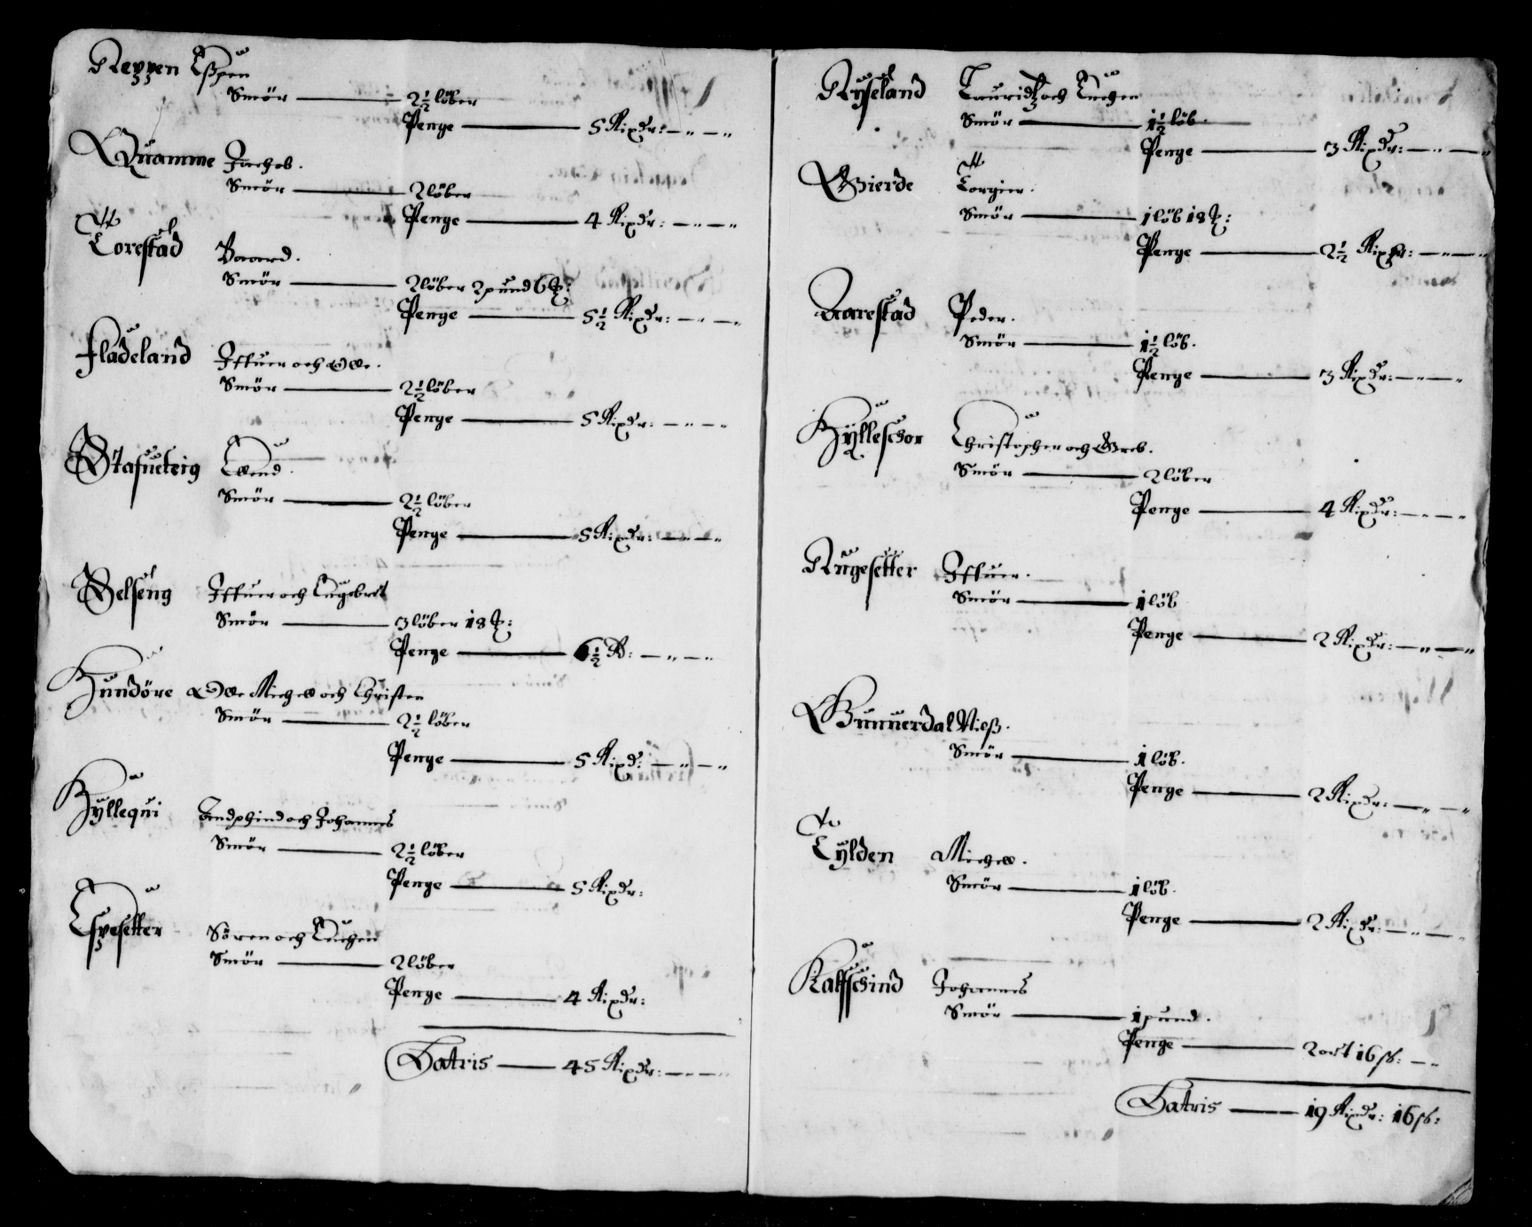 Reppen Espen
Smör — 2½ löber
Penge — 5 Rixdr: — " — "
Quamme Jachob.
Smör — 2 löber
Penge — 4 Rixdr: — " — "
Torestad Baard.
Smör — 2 löber 2 pund 6 ℔:
Penge — 5½ Rixdr: — " — "
Fladeland Iffuer och Ole.
Smör — 2½ löber
Penge — 5 Rixdr: — " — "
Stafueteig Erlend.
Smör — 2½ löber
Penge — 5 Rixdr: — " — "
Belseng Iffuer och Engebret
Smör — 3 löber 18 ℔:
Penge — 6½ R: — " — "
Hundöre Olle Michell och Christen
Smör — 2½ löber
Penge — 5 Rixd: — " — "
Hyllequi Endphind och Johannes
Smör — 2½ löber
Penge — 5 Rixdr:
Espesetter Sören och Euchen
Smör — 2 löber
Penge — 4 Rixdr:
Latris — 45 Rixdr: — " — "
Ryseland Lauridtz och Euchen
Smör — 1½ löb.
Penge — 3 Rixdr: — " — "
Gierde Torgier.
Smör — 1 löb 18 ℔:
Penge — 2½ Rixdr: — " — "
Aarestad Peder.
Smör — 1½ löb.
Penge — 3 Rixdr: — " —
Hylleschor Christopher och Greb.
Smör — 2 löber
Penge — 4 Rixdr: — " — "
Rugesetter Iffuer.
Smör — 1 löb
Penge — 2 Rixdr: — " — "
Gunnerdal Nielß.
Smör — 1 löb.
Penge — 2 Rixdr: — " — "
Tylden Michell.
Smör — 1 löb.
Penge — 2 Rixdr: — " — "
Kalfschind Johannes
Smör — 1 pund.
Penge — 2 ort 16 sk: — "
Latris — 19 Rixdr: 16 sk: